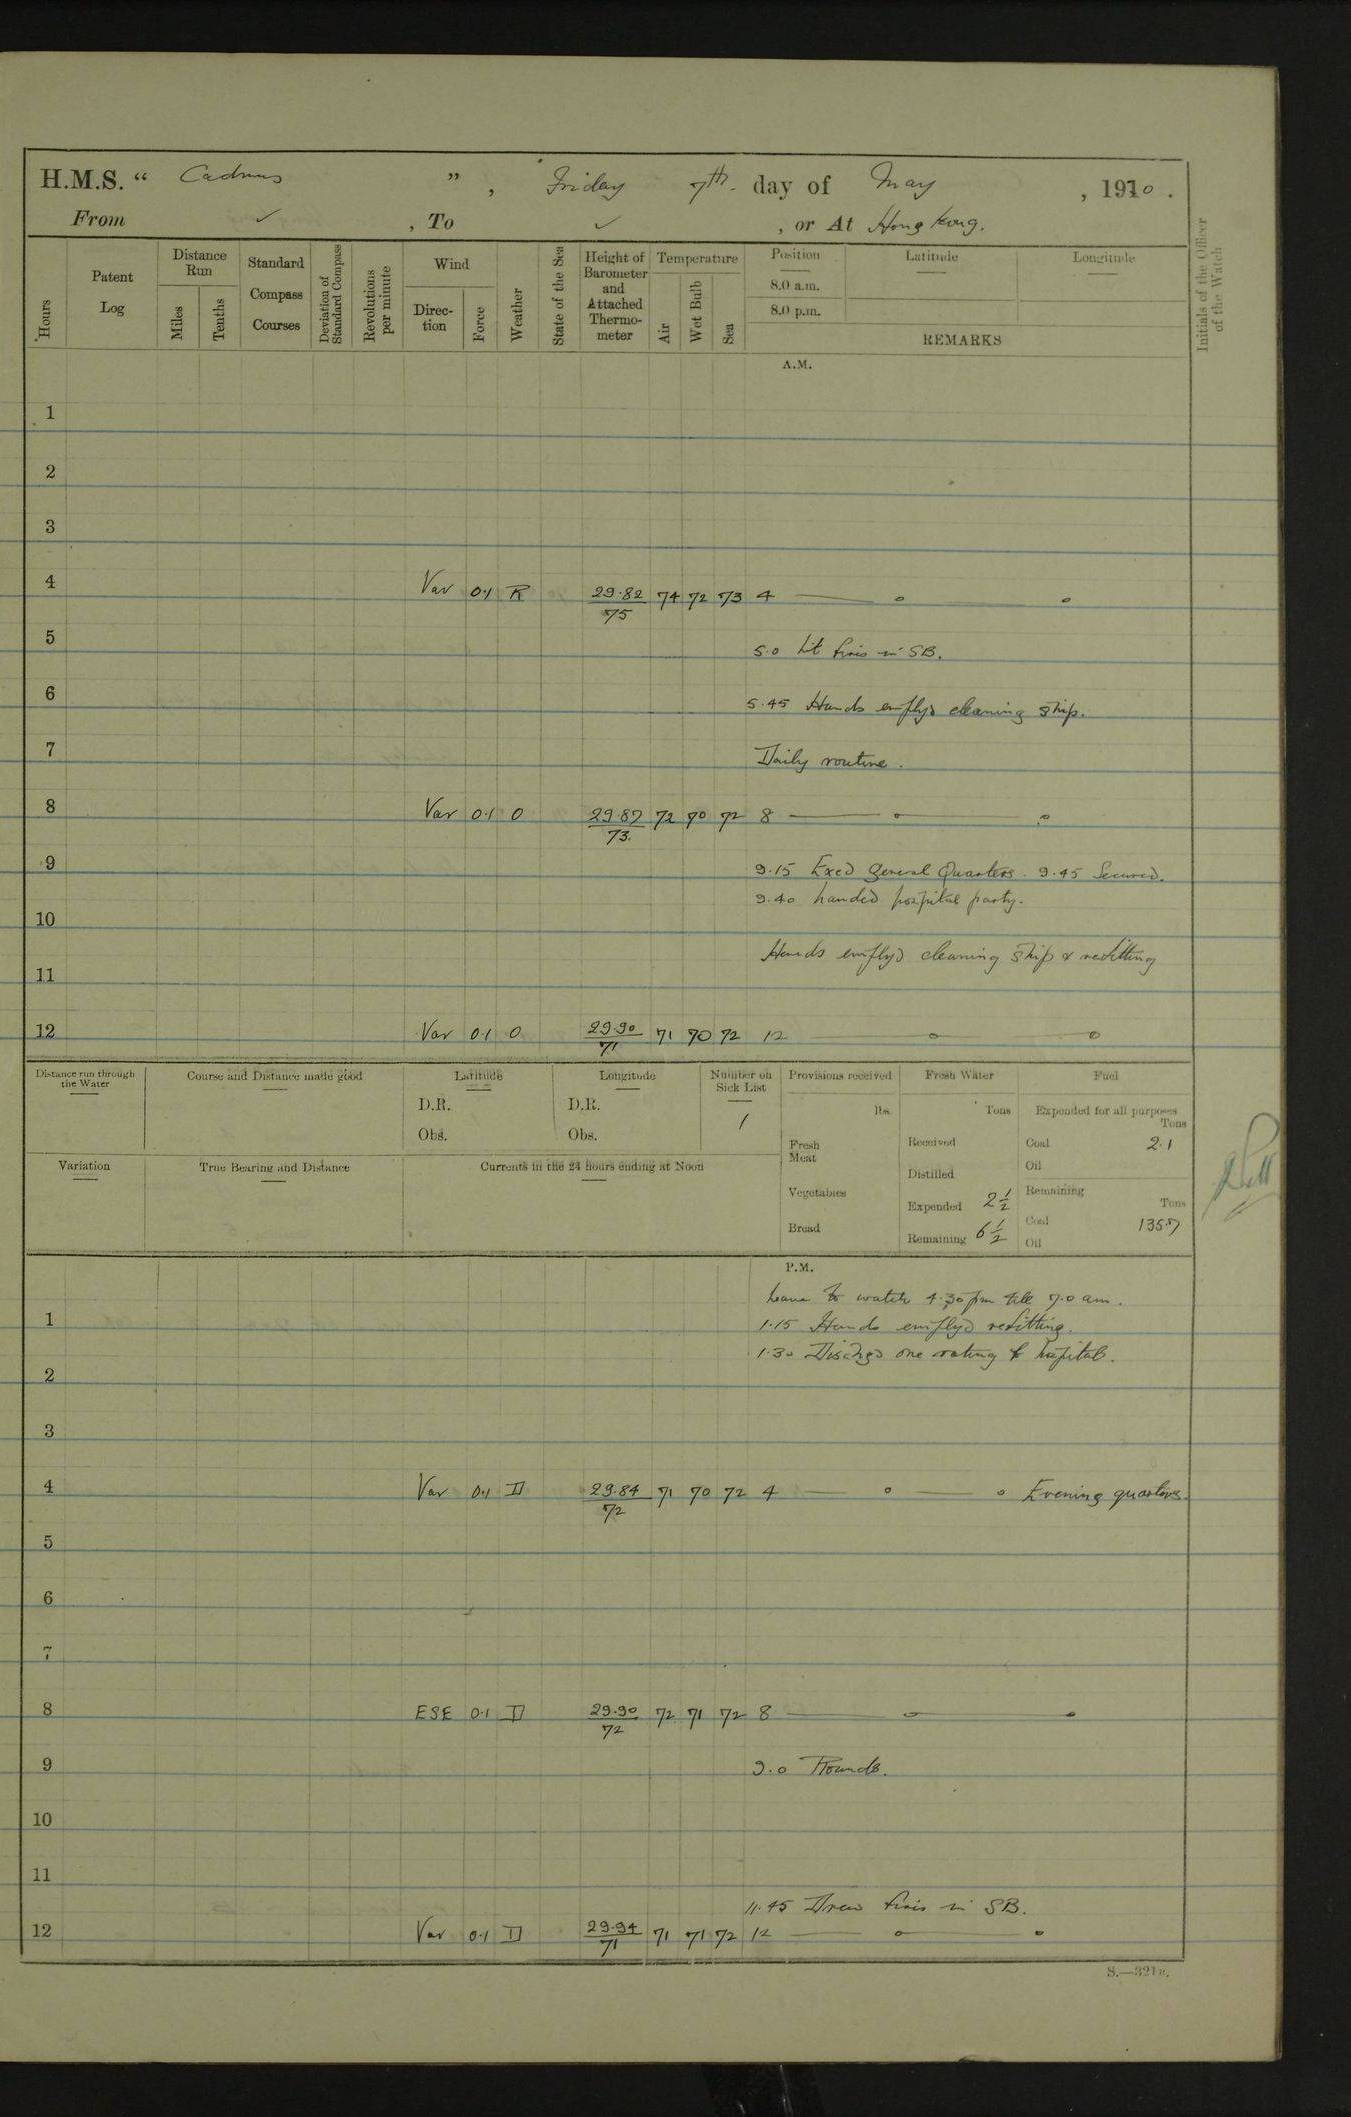 H.M.S. “ Cadmus ” , Friday 7th. day of May , 1910 .
From ✓ , To ✓ , or At Hong Kong.
Hours Patent Log Distance Run Miles Tenths Standard Compass Courses Deviation of Standard Compass Revolutions per minute Wind Direction Force Weather State of the Sea Height of Barometer and Attached Thermometer Temperature Air Wet Bulb Sea Position 8.0 a.m. 8.0 p.m. Latitude Longitude REMARKS Initials of the Officer of the Watch
A.M.
1
2
3
4 Var 0.1 R 29.82/75 74 72 73 4 — o — o
5 5.0 Lit fires in SB.
6 5.45 Hands emplyd cleaning ship.
7 Daily routine.
8 Var 0.1 O 29.87/73. 72 70 72 8 — o — o
9 9.15 Exed General Quarters. 9.45 Secured.
9.40 landed hospital party.
10
Hands emplyd cleaning ship & refitting
11
12 Var 0.1 O 29.90/71 71 70 72 12 — o — o
Distance run through the Water Course and Distance made good Latitude D.R. Obs. Longitude D.R. Obs. Number on Sick List 1
Provisions received lbs. Fresh Meat Vegetables Bread
Fresh Water Tons Received Distilled Expended 2½ Remaining 6½
Fuel Expended for all purposes Tons Coal 2.1 Oil Remaining Tons Coal 135.7 Oil
Variation True Bearing and Distance Currents in the 24 hours ending at Noon
P.M.
Leave to watch 4.30 pm till 7.0 am.
1 1.15 Hands emplyd refitting.
1.30 Dischgd one rating to hospital.
2
3
4 Var 0.1 D 29.84/72 71 70 72 4 — o — o Evening quarters.
5
6
7
8 ESE 0.1 D 29.90/72 72 71 72 8 — o — o
9 9.0 Rounds.
10
11
11.45 Drew fires in SB.
12 Var 0.1 D 29.94/71 71 71 72 12 — o — o
S.—321B.